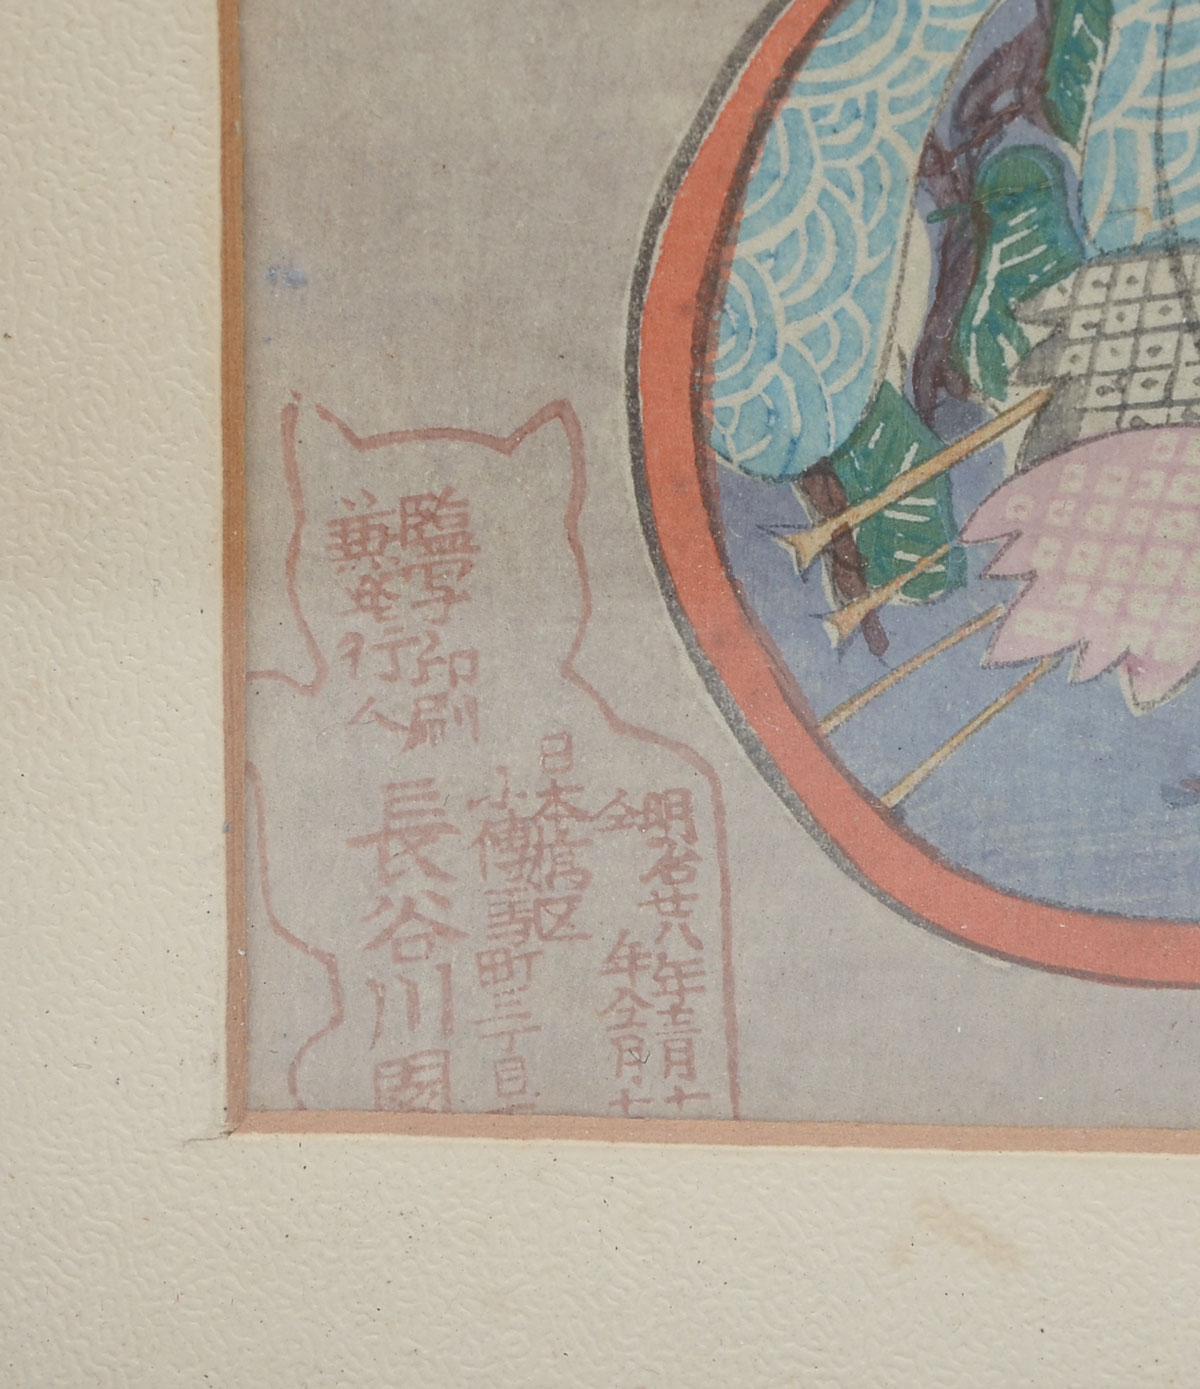 明治廿八年十二月十
仝年仝月十
日本橋区
小傳馬町三丁目
臨写印刷
兼発行人
長谷川